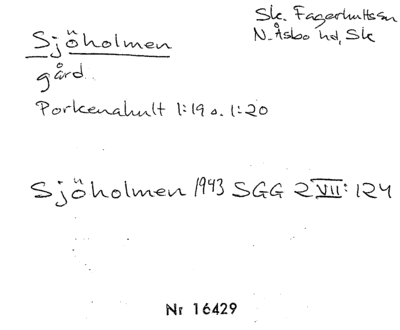 Sjöholmen
gård
Porkenahult 1:19 o. 1:20
Sk. Fagerhults sn
N. Åsbo hd, Sk
Sjöholmen 1943 SGG 2 VII: 124
Nr 16429